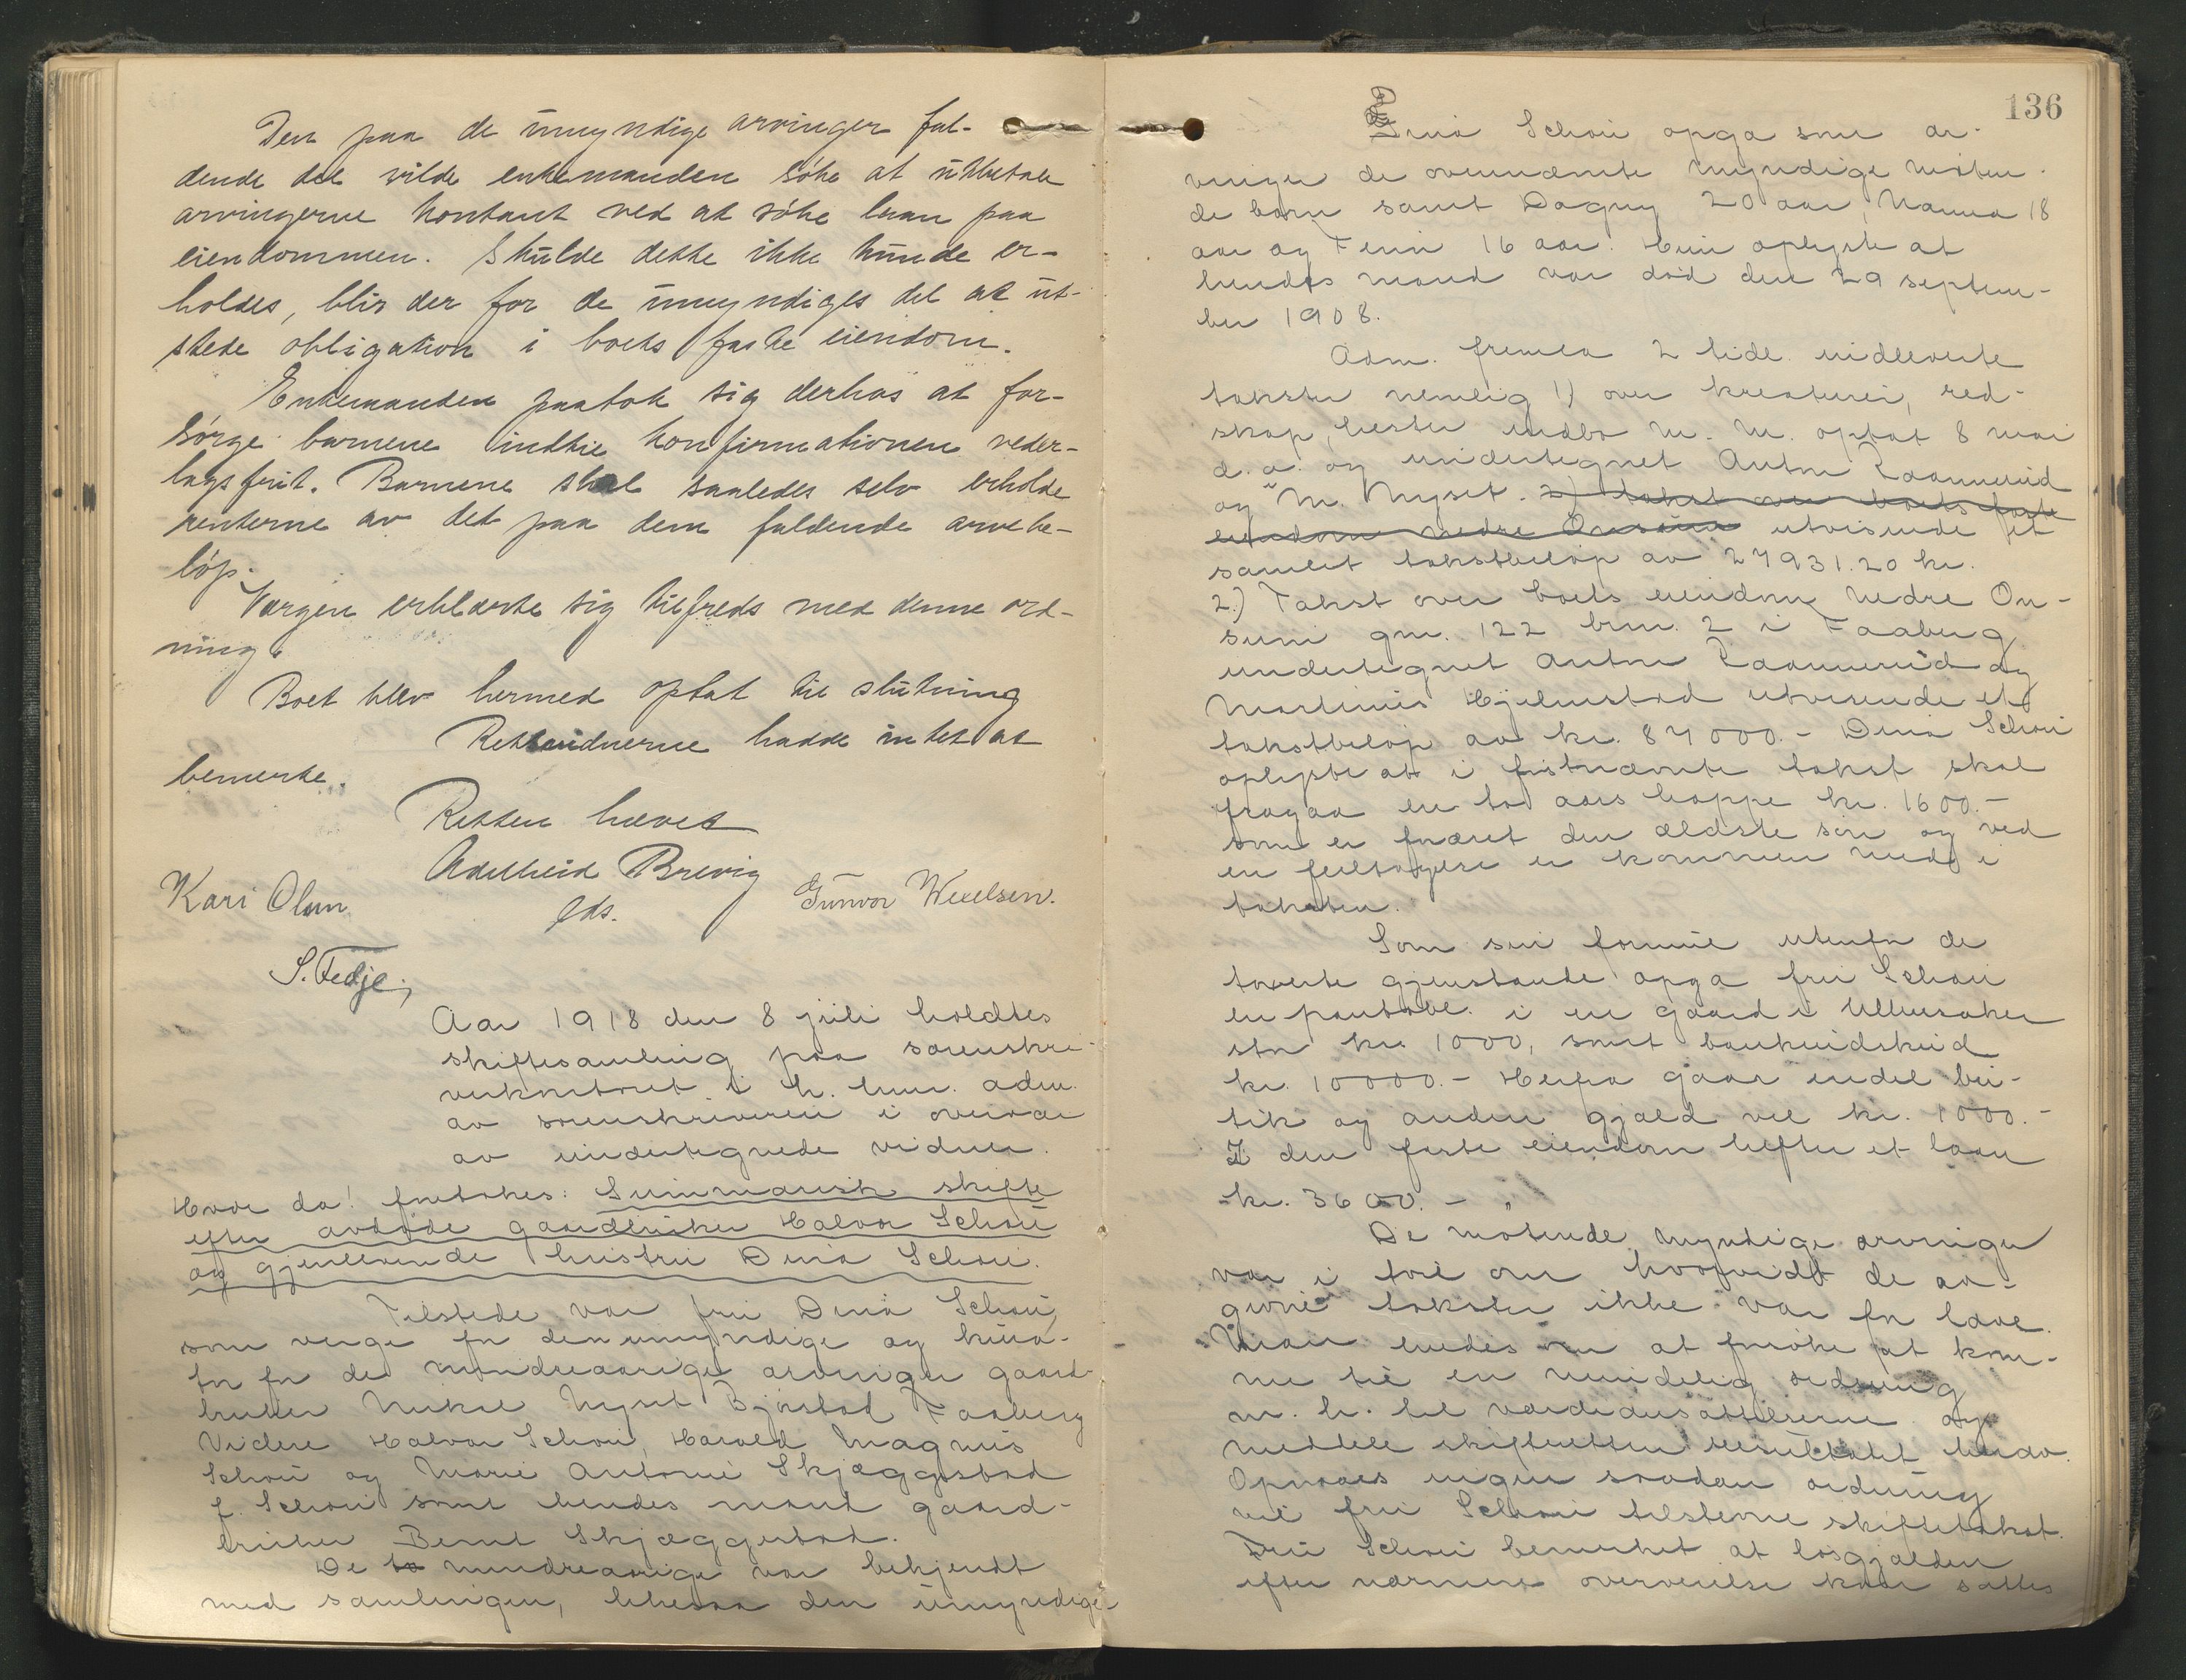 Den paa de umyndige arvinger fal-
dende del vilde enkemanden söke at utbetale
arvingerne kontant ved at söke laan paa
eiendommen. Skulde dette ikke kunde er-
holdes, blir der for de umyndiges del at ut-
stede obligation i boets faste eiendom.
Enkemanden paatok sig derhos at for-
sörge barnene indtil konfirmationen veder-
lagsfrit. Barnene skal saaledes selv erholde
renterne av det paa dem faldende arvebe-
löp.
Vergen erklærte sig tilfreds med denne ord-
ning.
Boet blev hermed optat til slutning
Rettsvidnerne hadde intet at
bemerke.
Retten hævet
Adelheid Brevig
eds.
Kari Olsen
Gunvor Wexelsen.
S. Tedje,
Aar 1918 den 8 juli holdtes
skiftesamling paa sorenskri-
verkontoret i L.hmr. adm.
av sorenskriveren i overvær
av undertegnede vidner.
Hvor da! foretokes: Summarisk skifte
efter avdöde gaardbruker Halvor Schou
og gjenlevende hustru Dina Schou.
Tilstede var fru Dina Schou,
som verge for den umyndige og kura-
tor for de mindreaarige arvinger gaard-
bruker Mikal Nyset Bjørstad Faaberg
Videre Halvor Schou, Harald Magnus
Schou og Marie Antonie Skjæggestad
f. Schou samt hendes mand gaard-
bruker Bernt Skjæggestad.
De to mindreaarige var bekjendt
med samlingen, likesaa den umyndige
136
Dina Schou opga som ar-
vinger de ovennævnte myndige möten-
de barn samt Dagny 20 aar, Hanna 18
aar og Finn 16 aar. Hun oplyste at
hendes mand var död den 29 septem-
ber 1908.
Adm. fremla 2 tidl. indleverte
takster nemlig 1) over kreaturer, red-
skap, hester indbo m. m. optat 8 mai
d. a. og undertegnet Anton Raanerud
og M. Nyset. 2) takst over boets faste
eiendom Nedre Onsum utvisende et
samlet takstbelöp av 27931.20 kr.
2.) Takst over boets eiendom Nedre On-
sum gnr. 122 brnr. 2 i Faaberg
undertegnet Anton Raanerud og
Martinus Hjelmstad utvisende et
takstbelöp av kr. 87000.- Dina Schou
oplyste at i förstnævnte takst skal
fragaa en to aars hoppe kr. 1600.-
som er foræret den ældste sön og ved
en feiltagelse er kommen med i
taksten.
Som sin formue utenfor de
takserte gjenstande opga fru Schou
en pantobl. i en gaard i Ullensaker
stor kr. 1000, samt bankindskud
kr. 10000.- Herfra gaar endel bu-
tik og anden gjæld vel kr. 1000.-
I den faste eiendom hefter et laan
kr. 3600.-
De mötende myndige arvinger
var i tvil om hvorvidt de av-
givne takster ikke var for lave.
Man enedes om at forsöke at kom-
me til en mindelig ordning
m. h. t. værdiansættelserne og
meddele skifteretten resultatet herav.
Opnaaes ingen saadan ordning
vil fru Schou tilstevne skiftetakst.
Fru Schou bemerket at lösgjælden
efter nærmere overveielse kan sættes